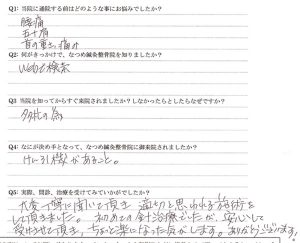 Q1: 当院に通院する前はどのような事にお悩みでしたか？
腰痛
五十肩
首の重さ、痛み
Q2: 何がきっかけで、なつめ鍼灸整骨院を知りましたか？
webで検索
Q3 当院を知ってからすぐ来院されましたか？しなかったらとしたらなぜですか？
多忙の為
Q4: なにが決め手となって、なつめ鍼灸整骨院に御来院されましたか？
けん引機があること。
Q5: 実際、問診、治療を受けてみていかがでしたか？
大変丁寧に聞いて頂き 適切と思われる施術を
して頂きました。初めての針治療でしたが、安心して
受けさせて頂き、ちょっと楽になった気がします。ありがとうございます。